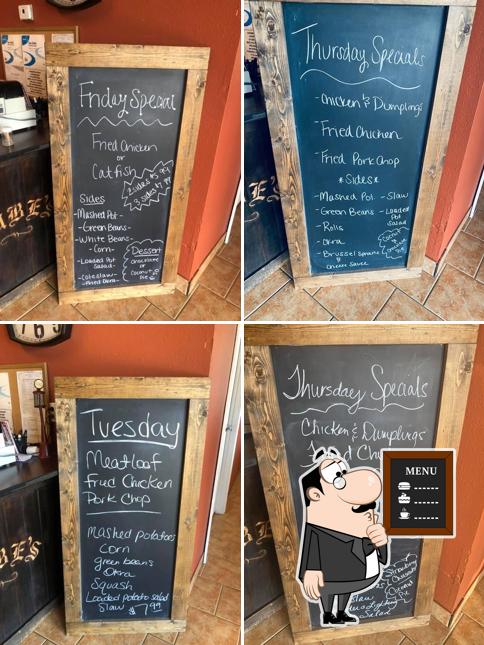 Friday Special
Fried Chicken
or
Catfish
2 sides $5.99
3 sides $7.99
Sides
-Mashed Pot-
-Green Beans-
-White Beans-
-Corn-
-Loaded Pot
Salad-
-Coleslaw-
-Fried Okra-
Dessert
Chocolate
or
Coconut
Pie
BE'S
Thursday Specials
-Chicken & Dumplings
-Fried Chicken
-Fried Pork Chop
*Sides*
-Mashed Pot. -Slaw
-Green Beans -Loaded
Pot
Salad
-Rolls
-Okra
-Brussel Sprouts
Cheese Sauce
Tuesday
Meatloaf
Fried Chicken
Pork Chop
Mashed potatoes
Corn
green beans
Okra
Squash
Loaded potato salad
Slaw $7.99
BE'S
Thursday Specials
Chicken & Dumplings
MENU
Strawberry
Slaw
Salad
Pie